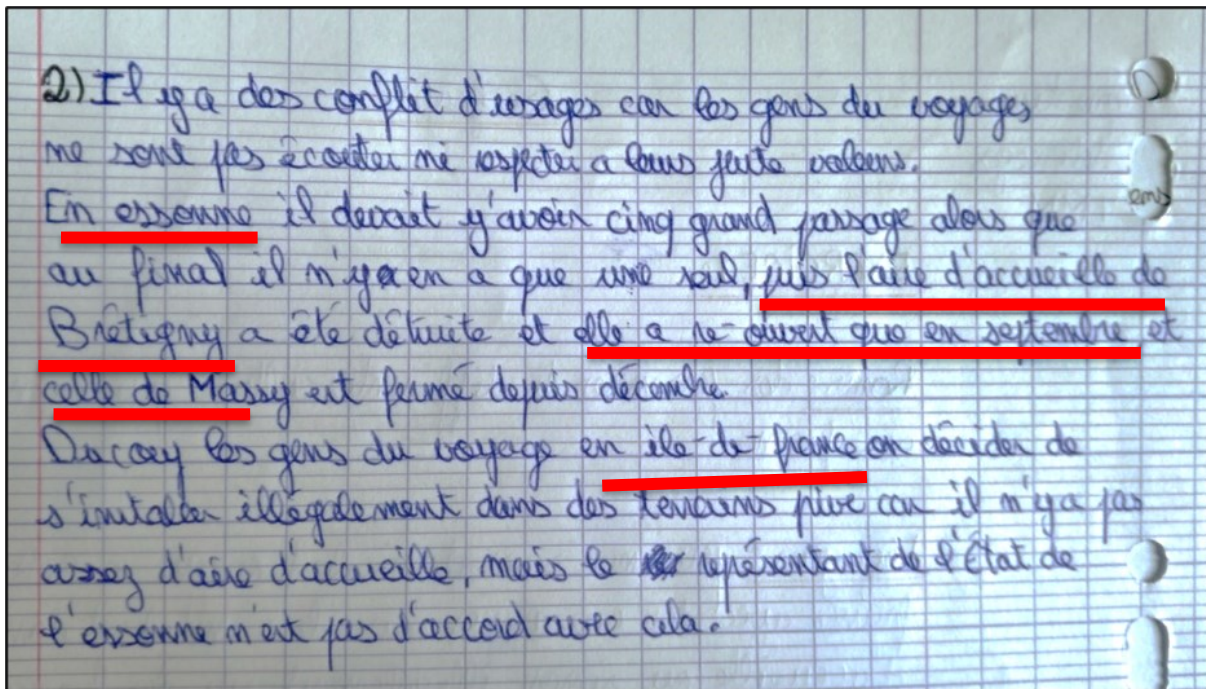 2) Il y a des conflit d'usages car les gens du voyages
ne sont pas écouter ni respecter a leurs juste valeurs.
En essonne il devait y'avoir cinq grand passage alors que
au final il n'y a en a que une seul, puis l'aire d'accueille de
Brétigny a été détruite et elle a re-ouvert que en septembre et
celle de Massy est fermé depuis décembre.
Ducoup les gens du voyage en île-de-france on décider de
s'installer illégalement dans des terrains privé car il n'y a pas
assez d'aire d'accueille, mais le représentant de l'État de
l'essonne n'est pas d'accord avec cela.